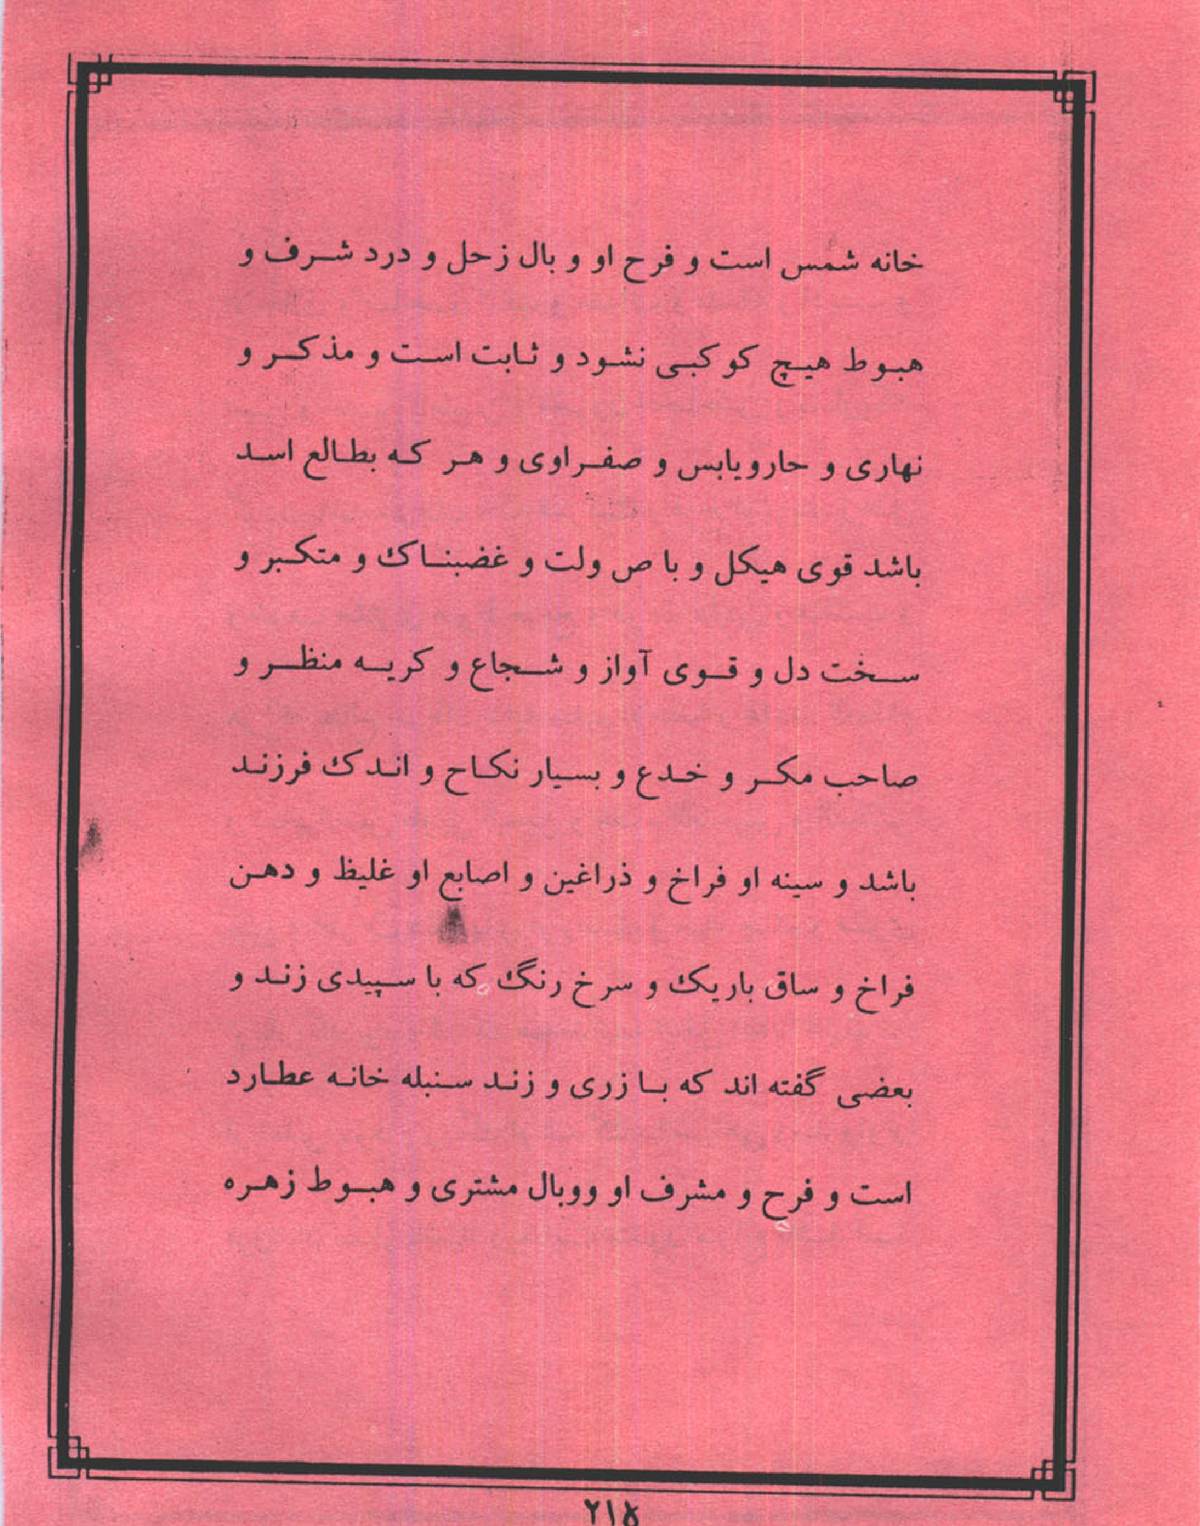 خانه شمس است و فرح او و بال زحل و درد شرف و
هبوط هیچ کوکبی نشود و ثابت است و مذکر و
نهاری و حارویابس و صفراوی و هر که بطالع اسد
باشد قوی هیکل و با ص ولت و غضبناک و متکبر و
سخت دل و قوی آواز و شجاع و کریه منظر و
صاحب مکر و خدع و بسیار نکاح و اندک فرزند
باشد و سینه او فراخ و ذراغین و اصابع او غلیظ و دهن
فراخ و ساق باریک و سرخ رنگ که با سپیدی زند و
بعضی گفته اند که با زری و زند سنبله خانه عطارد
است و فرح و مشرف او ووبال مشتری و هبوط زهره
۲۱۵